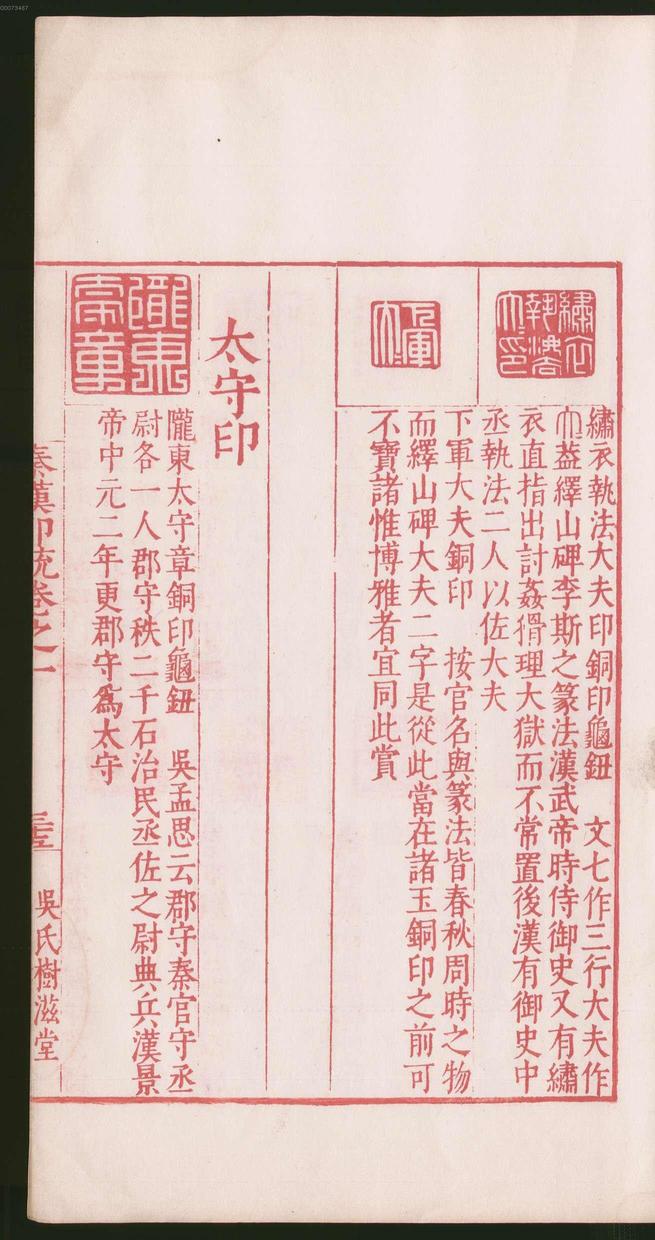 00073467
繡衣執法大夫印銅印龜鈕　文七作三行大夫作
夶蓋繹山碑李斯之篆法漢武帝時侍御史又有繡
衣直指出討姦猾理大獄而不常置後漢有御史中
丞執法二人以佐大夫
下軍大夫銅印　按官名與篆法皆春秋周時之物
而繹山碑大夫二字是從此當在諸玉銅印之前可
不寶諸惟博雅者宜同此賞
太守印
隴東太守章銅印龜鈕　吳孟思云郡守秦官守丞
尉各一人郡守秩二千石治民丞佐之尉典兵漢景
帝中元二年更郡守爲太守
秦漢印統卷之一
吳氏樹滋堂